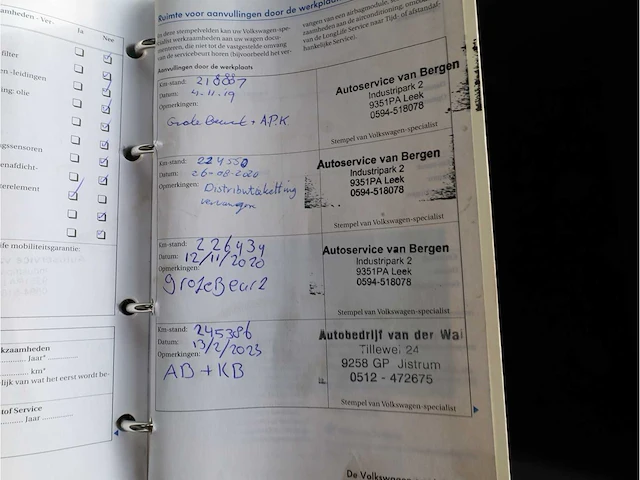 amheden - Ver-
Ja
Nee
filter
n -leidingen
ing: olie
gssensoren
enafdicht-
terelement
ife mobiliteitsgarantie:
kzaamheden
Jaar*
km*
lijk van wat het eerst wordt be-
tof Service
Jaar
Ruimte voor aanvullingen door de werkplaats
In deze stempelvelden kan uw Volkswagen-spe-
cialist werkzaamheden aan uw wagen docu-
menteren, die niet tot de vastgestelde omvang
van de servicebeurt horen (bijvoorbeeld het ver-
vangen van een airbagmodule,
werkzaamheden aan de airconditioning,
van de LongLife Service naar Tijd- of afstandaf-
hankelijke Service).
Aanvullingen door de werkplaats
Km-stand:
Datum: 4-11-19
Opmerkingen:
Grote Beurt + APK
Autoservice van Bergen
Industripark 2
9351PA Leek
0594-518078
Stempel van Volkswagen-specialist
Km-stand: 224550
Datum: 26-08-2020
Opmerkingen: Distributieketting
vervangen
Autoservice van Bergen
Industripark 2
9351PA Leek
0594-518078
Stempel van Volkswagen-specialist
Km-stand: 226434
Datum: 12/11/2020
Opmerkingen:
groteBeur2
Autoservice van Bergen
Industripark 2
9351PA Leek
0594-518078
Stempel van Volkswagen-specialist
Km-stand: 245386
Datum: 13/2/2023
Opmerkingen:
AB + KB
Autobedrijf van der Wal
Tillewei 24
9258 GP Jistrum
0512 - 472675
Stempel van Volkswagen-specialist
De Volkswagen